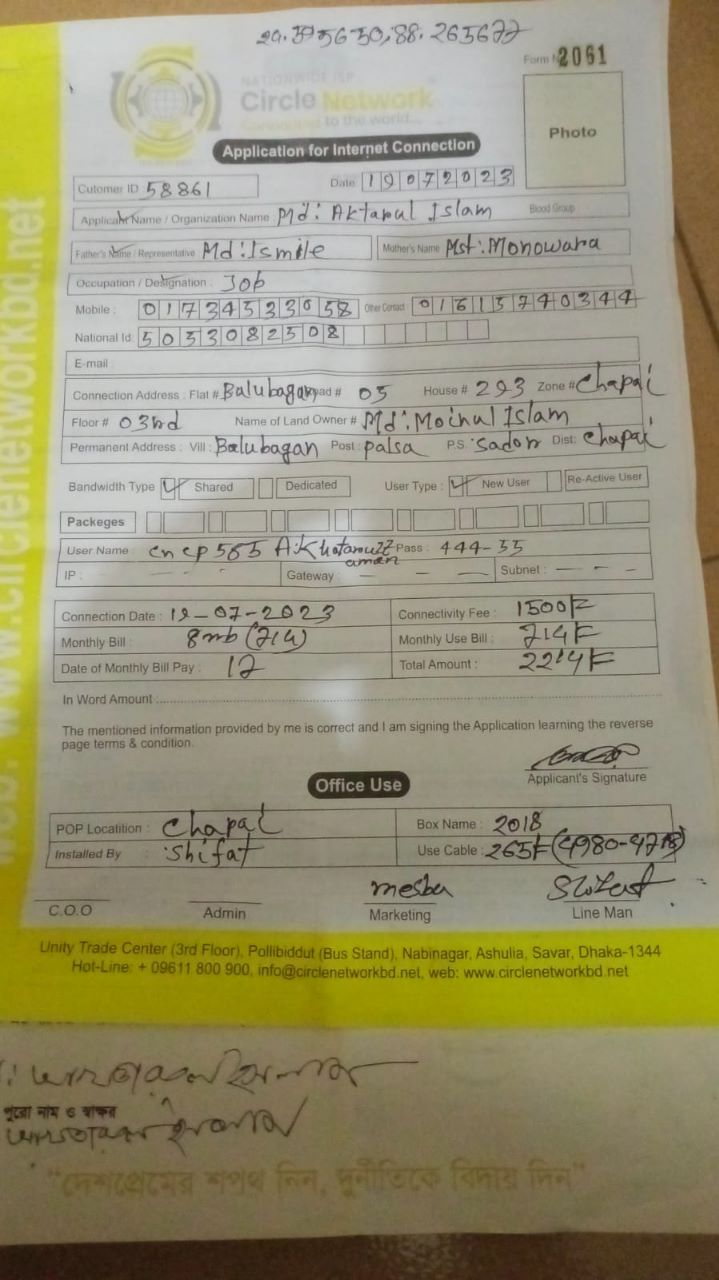 Form N 2061
NATIONWIDE ISP
Circle Network
Connected to the world...
Photo
Application for Internet Connection
Cutomer ID 58861 Date 19072023
Applicant Name / Organization Name Md: Aktarul Islam Blood Group
Father's Name / Representative Md: Ismile Mother's Name Mst: Monowara
Occupation / Designation : Job
Mobile : 01734533058 Other Contact 01615740344
National Id: 5053082508
E-mail
Connection Address : Flat # Balubagan Road # 05 House # 293 Zone # Chapai
Floor # 03rd Name of Land Owner # Md: Moinul Islam
Permanent Address : Vill : Balubagan Post : palsa P.S. sador Dist: Chapai
Bandwidth Type Shared Dedicated User Type : New User Re-Active User
Packeges
User Name : cncp565 Pass : 444-55
IP : - - - Gateway : - - - Subnet : - - -
Connection Date : 19-07-2023 Connectivity Fee : 1500/=
Monthly Bill : 8mb Monthly Use Bill : 714/=
Date of Monthly Bill Pay : 12 Total Amount : 2214/=
In Word Amount
The mentioned information provided by me is correct and I am signing the Application learning the reverse
page terms & condition.
Applicant's Signature
Office Use
POP Locatition : Chapai Box Name : 2018
Installed By : Shifat Use Cable : 265F (4980-4715)
mesba Shifat
C.O.O Admin Marketing Line Man
Unity Trade Center (3rd Floor), Pollibiddut (Bus Stand), Nabinagar, Ashulia, Savar, Dhaka-1344
Hot-Line: + 09611 800 900, info@circlenetworkbd.net, web: www.circlenetworkbd.net
web: www.circlenetworkbd.net
পুরো নাম ও স্বাক্ষর
"দেশপ্রেমের শপথ নিন, দুর্নীতিকে বিদায় দিন"